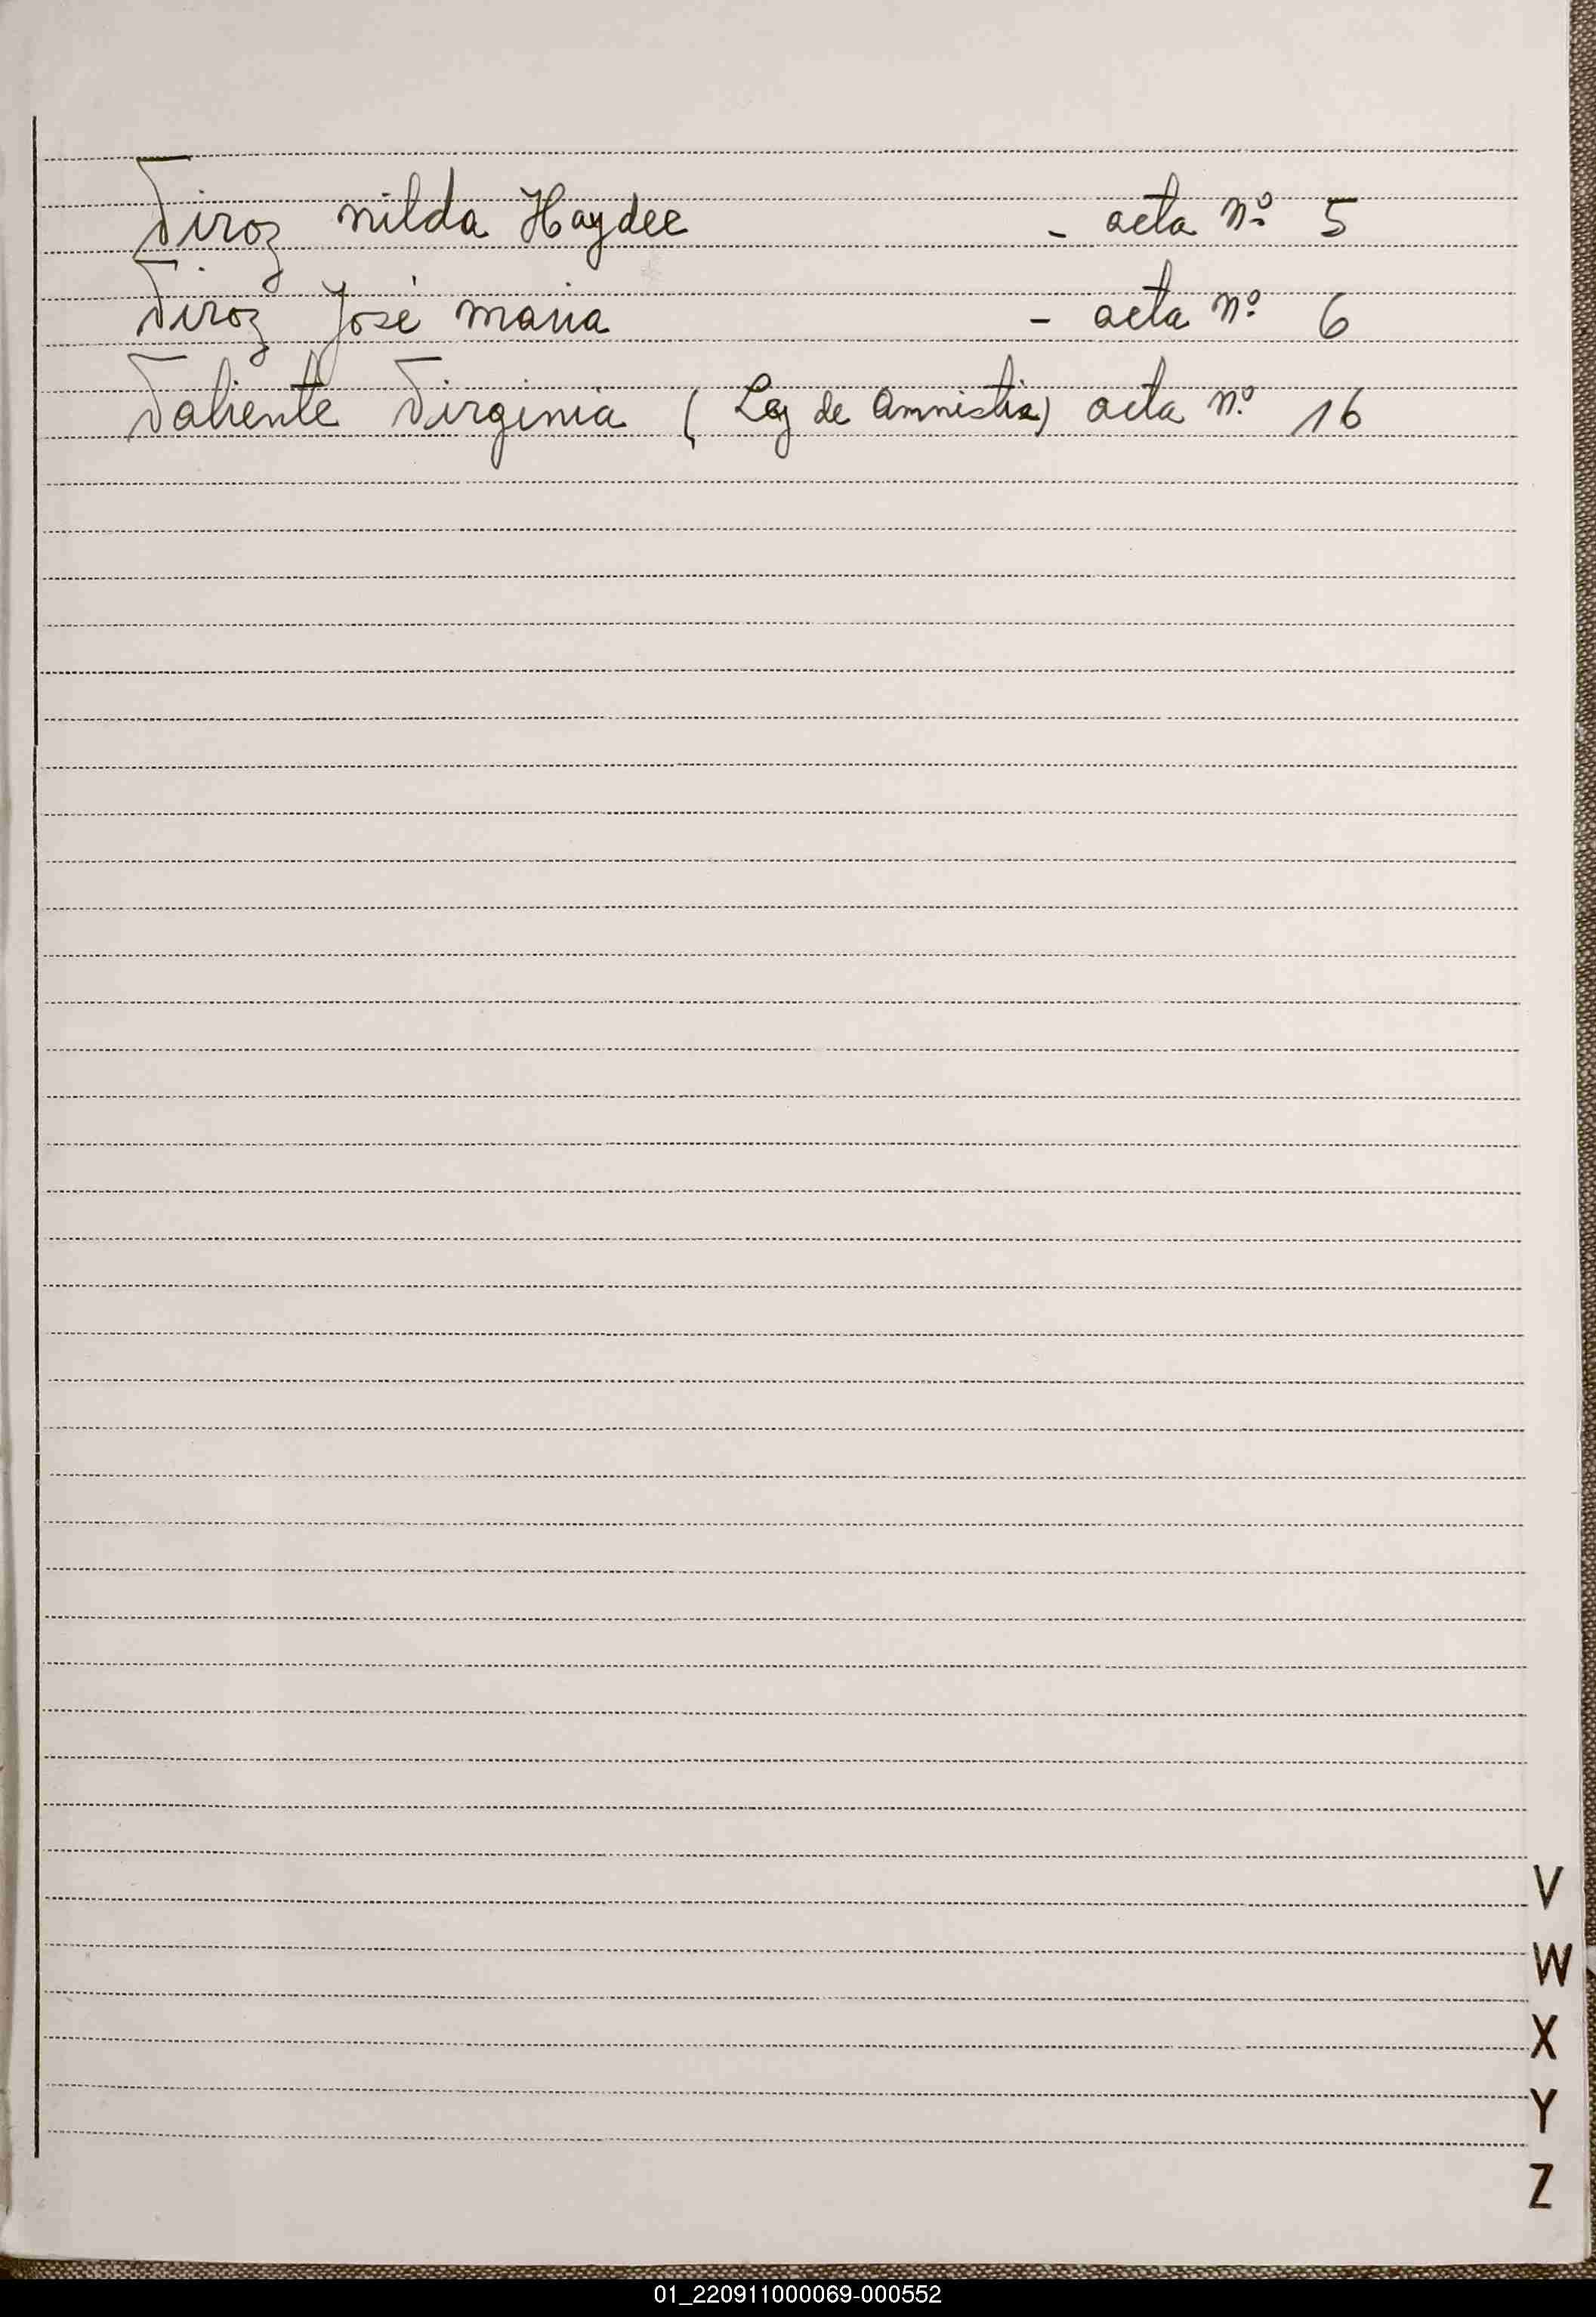 Viroz Nilda Haydee - acta nº 5
Viroz José Maria - acta nº 6
Valiente Virginia ( Ley de Amnistia) acta nº 16
V
W
X
Y
Z
01_220911000069-000552